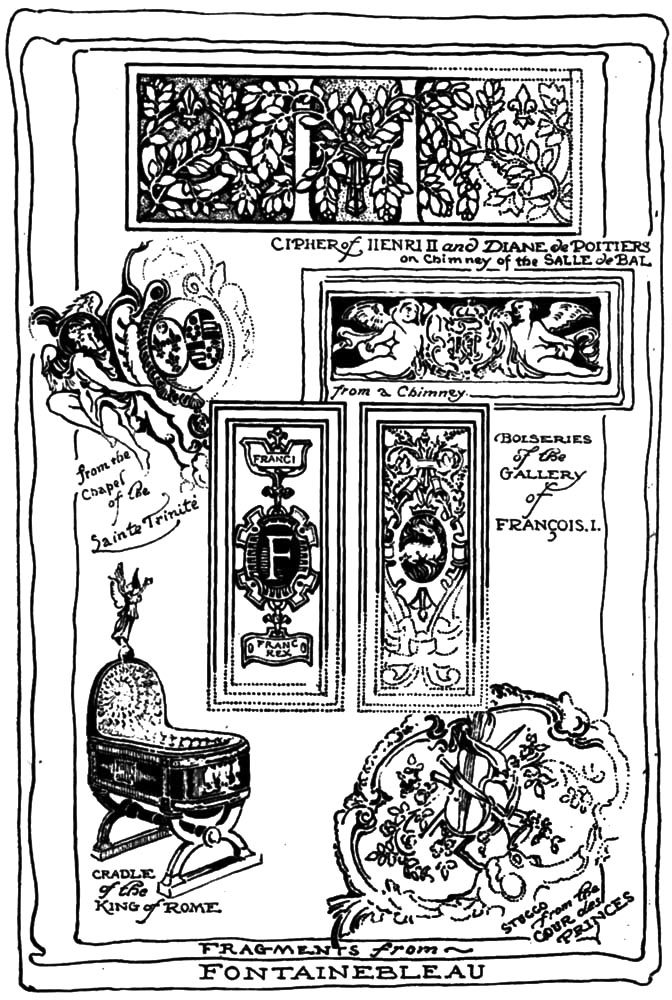 CIPHER of HENRI II and DIANE de POITIERS
on Chimney of the SALLE de BAL
from a Chimney.
from the
Chapel
of the
Sainte Trinité
FRANCI
F
FRANC
REX
BOISERIES
of the
GALLERY
of
FRANÇOIS. I.
CRADLE
of the
KING of ROME
STUCCO from the
COUR des
PRINCES
FRAGMENTS from
FONTAINEBLEAU